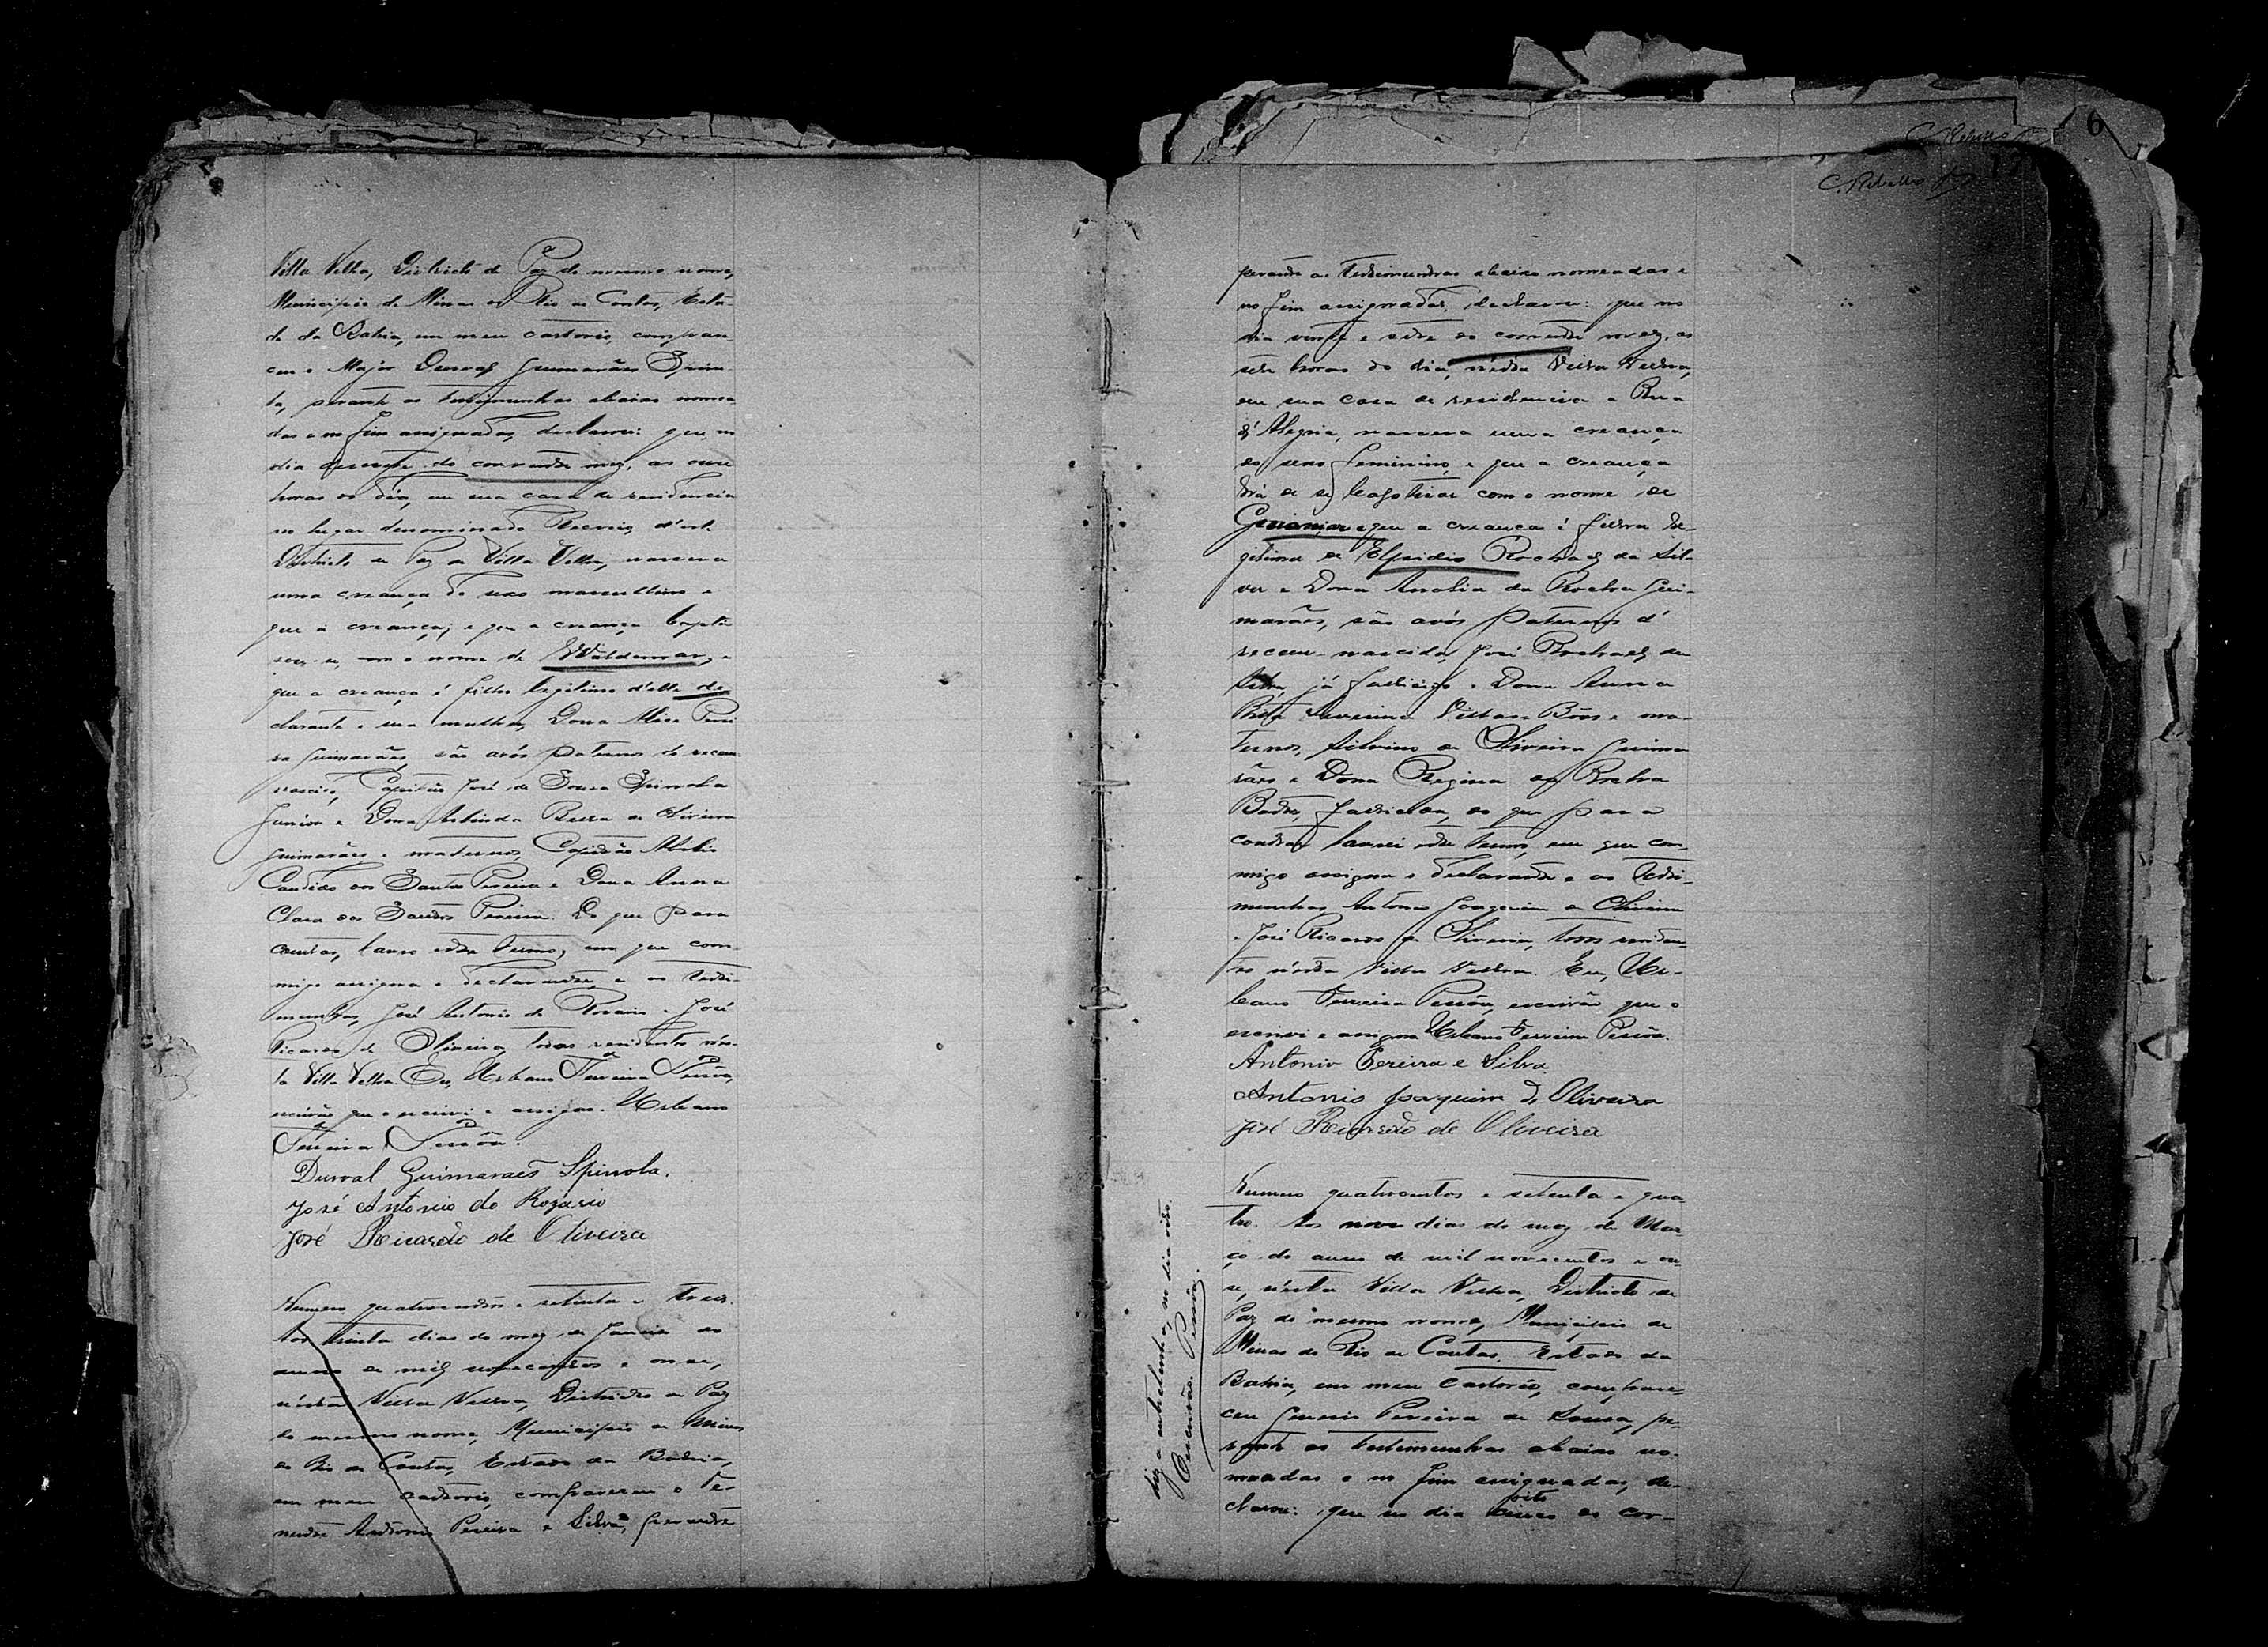 Villa Velha, Districto de Paz do mesmo nome,
Municipio de Minas do Rio de Contas, Esta-
do da Bahia, em meu cartorio, compare-
ceu o Major Durval Guimarães Spino-
la, perante as testimunhas abaixo nomea-
das e no fim assignadas, declarou: que, no
dia do corrente mez, as onze
horas do dia, em sua casa de residencia
no lugar denominado d'este
Districto de Paz de Villa Velha, nascera
uma creança do sexo masculino e
que a creança; e que a creança baptí
sou-se, com o nome de Waldemar, e
que a creança é filho legitimo d'elle de-
clarante e sua mulher, Dona Alice Perei
ra Guimarães, são avós paternos do recem
nascido, Capitão José de Souza Spinola
Junior e Dona de Oliveira
Guimarães, e maternos, Capitão Abilio
Candido dos Santos Pereira e Dona Anna
Clara dos Santos Pereira. Do que para
constar, lavro este termo, em que com-
migo assigna o declarante, e as testi-
munhas, José Antonio do Rosario e José
Ricardo de Oliveira, todos residentes nes-
ta Villa Velha. Eu, Urbano Ferreira Pessôa,
escrivão que o escrivi e assigno. Urbano
Ferreira Pessôa.
Durval Guimaraes Spinola.
José Antonio do Rozario
José Ricardo de Oliveira
Numero quatrocentos e setenta e tres.
Aos trinta dias do mez de Janeiro do
anno de mil novecentos e onze,
n'esta Villa Velha, Districto de Paz
do mesmo nome, Municipio de Minas
do Rio de Contas, Estado da Bahia,
em meu cartorio, compareceu o Te-
nente Antonio Pereira e Silva, perante
6
C. Rebello
17
C. Rebello
perante as testimunhas abaixo nomeadas e
no fim assignadas, declarou: que no
dia vinte e sete do corrente mez, as
sete horas do dia, n'esta Villa Velha,
em sua casa de residencia a Rua
d'Alegria, nascera uma creança
do sexo feminino, e que a creança
há de se baptisar com o nome de
e que a creança é filha le-
gitima de Elpidio Rochael da Sil-
va e Dona Analia da Rocha Gui-
marães, são avós paternos d'
recem-nascida, José Rochael da
Silva, já fallecido e Dona Anna
Rita Severina Villas-Bôas e ma-
ternos, Silvino de Oliveira Guima
rães e Dona Regina da Rocha
fallecida, do que para
constar lavrei este termo, em que com
migo assigna o declarante e as testi-
munhas Antonio Joaquim de Oliveira
e José Ricardo de Oliveira, todos residen-
tes n'esta Villa Velha. Eu, Ur-
bano Ferreira Pessôa, escrivão que o
escrivi e assigno. Urbano Ferreira Pessôa.
Antonio Pereira e Silva.
Antonio Joaquim de Oliveira
José Ricardo de Oliveira
Numero quatrocentos e setenta e qua
tro. Aos nove dias do mez de Mar-
ço do anno de mil novecentos e on-
ze, n'esta Villa Velha, Districto de
Paz do mesmo nome, Municipio de
Minas do Rio de Contas, Estado da
Bahia, em meu Cartorio, compare-
ceu Pereira de Sousa, pe-
rante as testimunhas abaixo no-
meadas e no fim assignadas, de-
clarou: que no dia oito do cor-
digo entrelinha, no dia oito.
Escrivão. Pessôa.